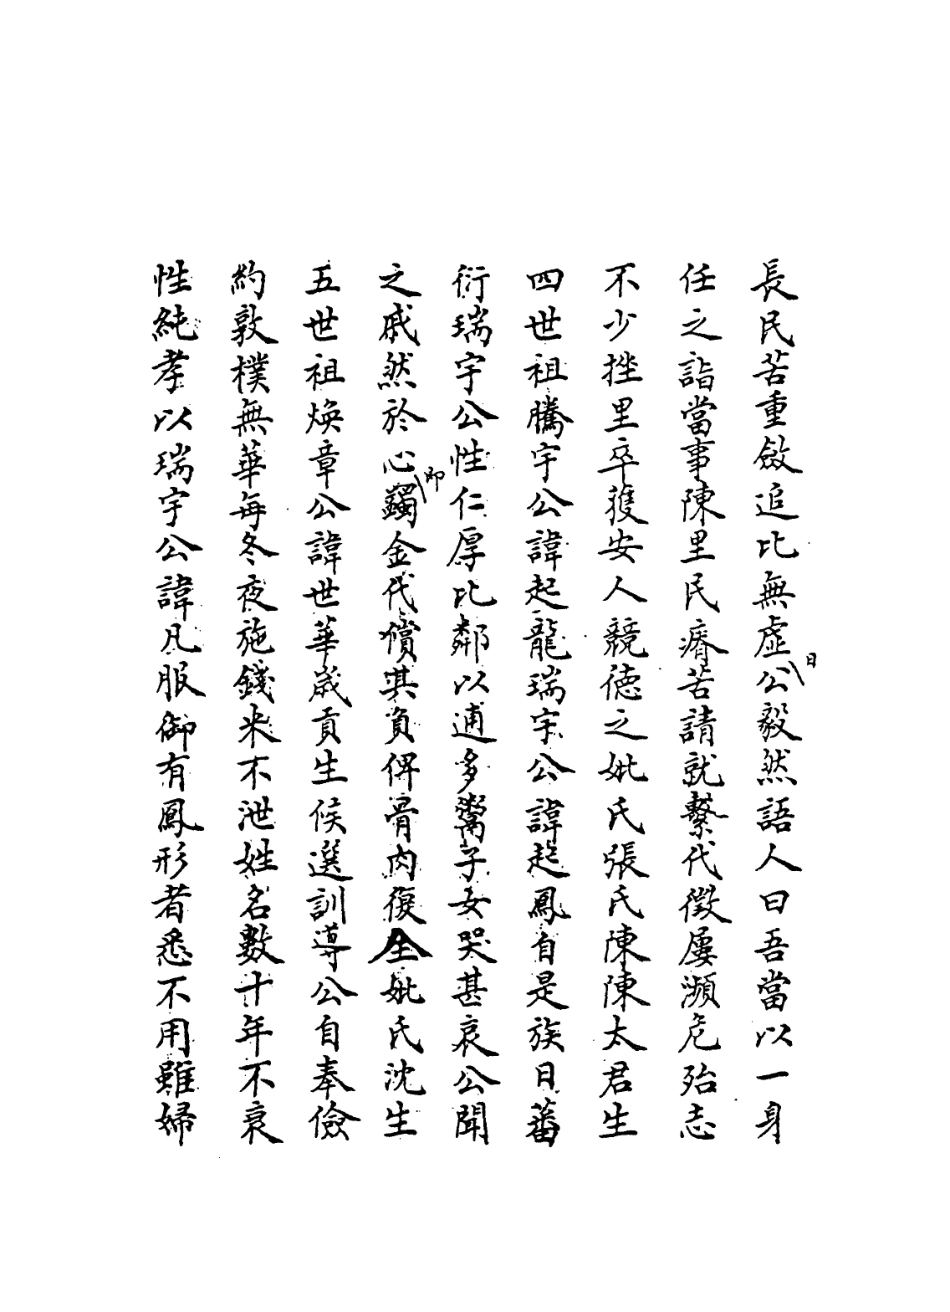 長民苦重斂追比無虛日公毅然語人曰吾當以一身
任之詣當事陳里民瘠苦請就繫代徵屢瀕危殆志
不少挫里卒獲安人競德之妣氏張氏陳陳太君生
四世祖騰宇公諱起龍瑞宇公諱起鳳自是族日蕃
衍瑞宇公性仁厚比鄰以逋多鬻子女哭甚哀公聞
之戚然於心即蠲金代償其負俾骨肉復全妣氏沈生
五世祖煥章公諱世華歲貢生候選訓導公自奉儉
約敦樸無華每冬夜施錢米不泄姓名數十年不衰
性純孝以瑞宇公諱凡服御有鳳形者悉不用雖婦